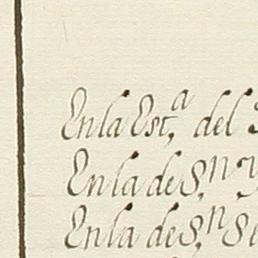 En la Est.ª del
En la de S.n
En la de S.n Se